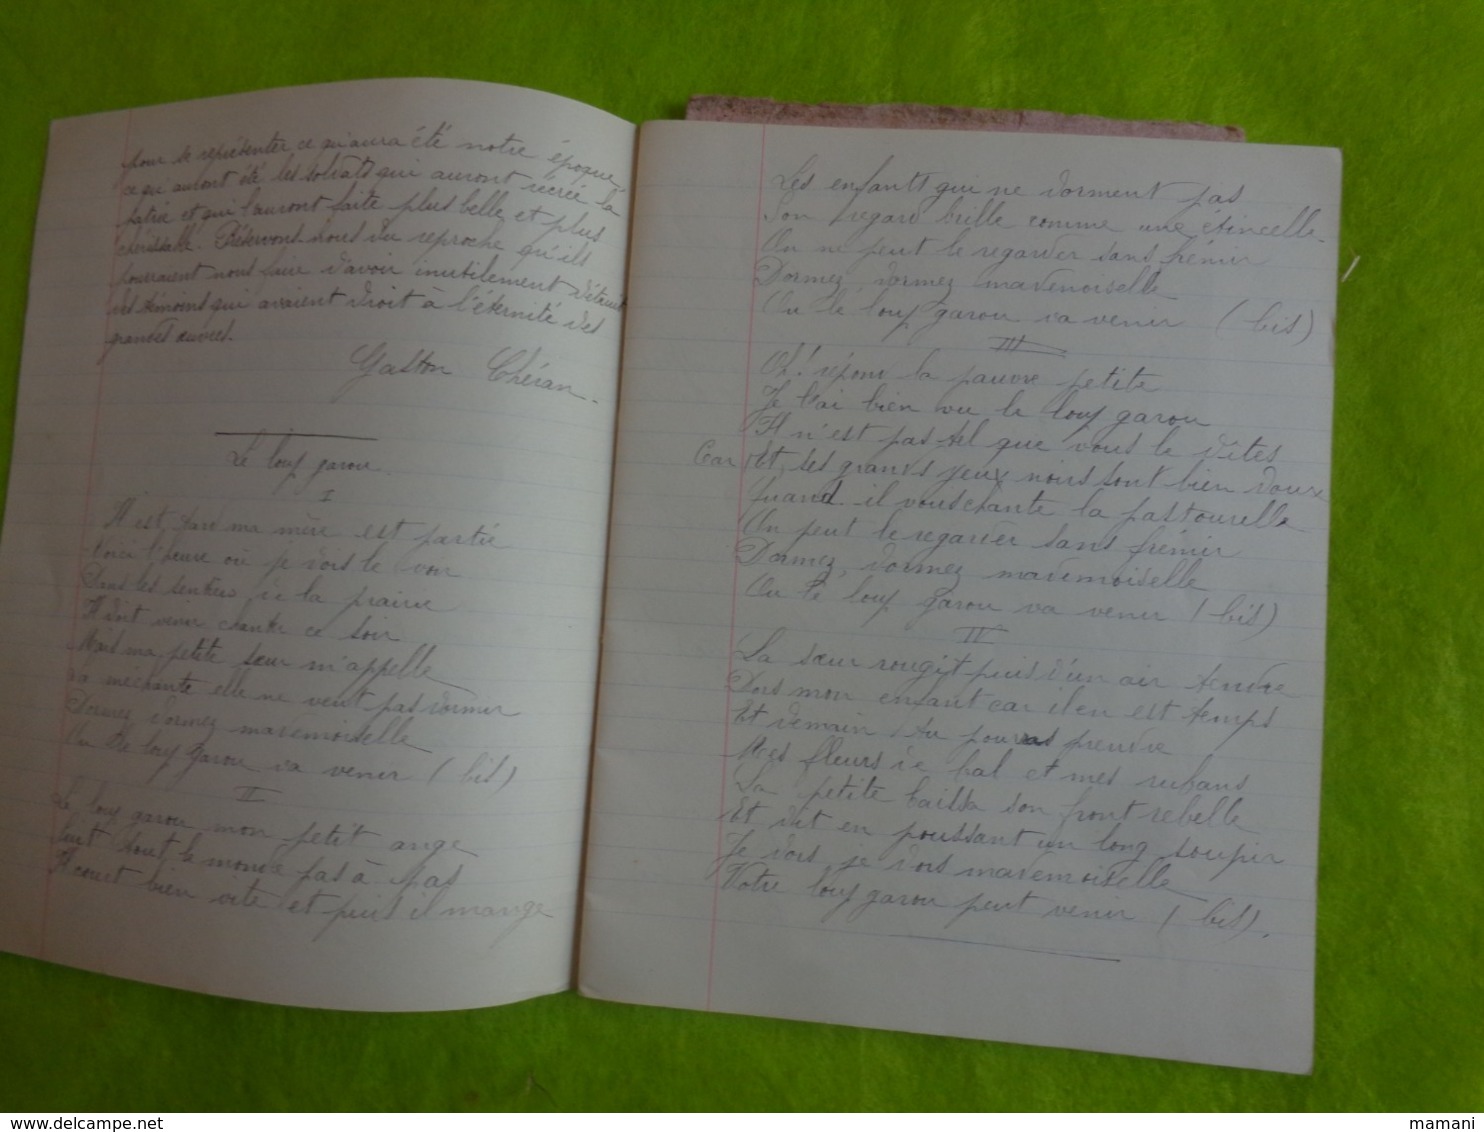 pour se représenter ce qu'aura été notre époque,
ce qu'auront été les soldats qui auront recréé la
patrie et qui l'auront faite plus belle et plus
chérissable. Préservons-nous du reproche qu'ils
pourraient nous faire d'avoir inutilement détruit
les témoins qui avaient droit à l'éternité des
grandes œuvres.
Gaston Chérau.
Le loup garou.
I
Il est tard ma mère est partie
Voici l'heure où je dois le voir
Dans les sentiers de la prairie
Il doit venir chanter ce soir
Mais ma petite sœur m'appelle
La méchante elle ne veut pas dormir
Dormez, dormez mademoiselle
Ou le loup garou va venir (bis)
II
Le loup garou mon petit ange
Suit tout le monde pas à pas
Il court bien vite et puis il mange
Les enfants qui ne dorment pas
Son regard brille comme une étincelle
On ne peut le regarder sans frémir
Dormez, dormez mademoiselle
Ou le loup garou va venir (bis)
III
Oh! répond la pauvre petite
Je l'ai bien vu le loup garou
Il n'est pas tel que vous le dites
Car Et ses grands yeux noirs sont bien doux
Quand il vous chante la pastourelle
On peut le regarder sans frémir
Dormez, dormez mademoiselle
Ou le loup garou va venir (bis)
IV
La sœur rougit puis d'un air tendre
Dors mon enfant car il en est temps
Et demain tu pourras prendre
Mes fleurs de bal et mes rubans
La petite baissa son front rebelle
Et dit en poussant un long soupir
Je dors, je dors mademoiselle
Votre loup garou peut venir (bis).
delcampe.net
mamani